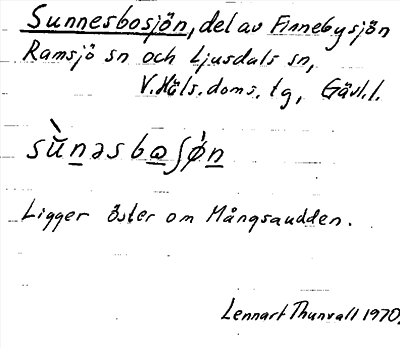 Sunnesbosjön, del av Finnebysjön
Ramsjö sn och Ljusdals sn,
V. Häls. doms. tg, Gävl. l.
sùnəs bɷʃǿn
Ligger öster om Mångsaudden.
Lennart Thunvall 1970.